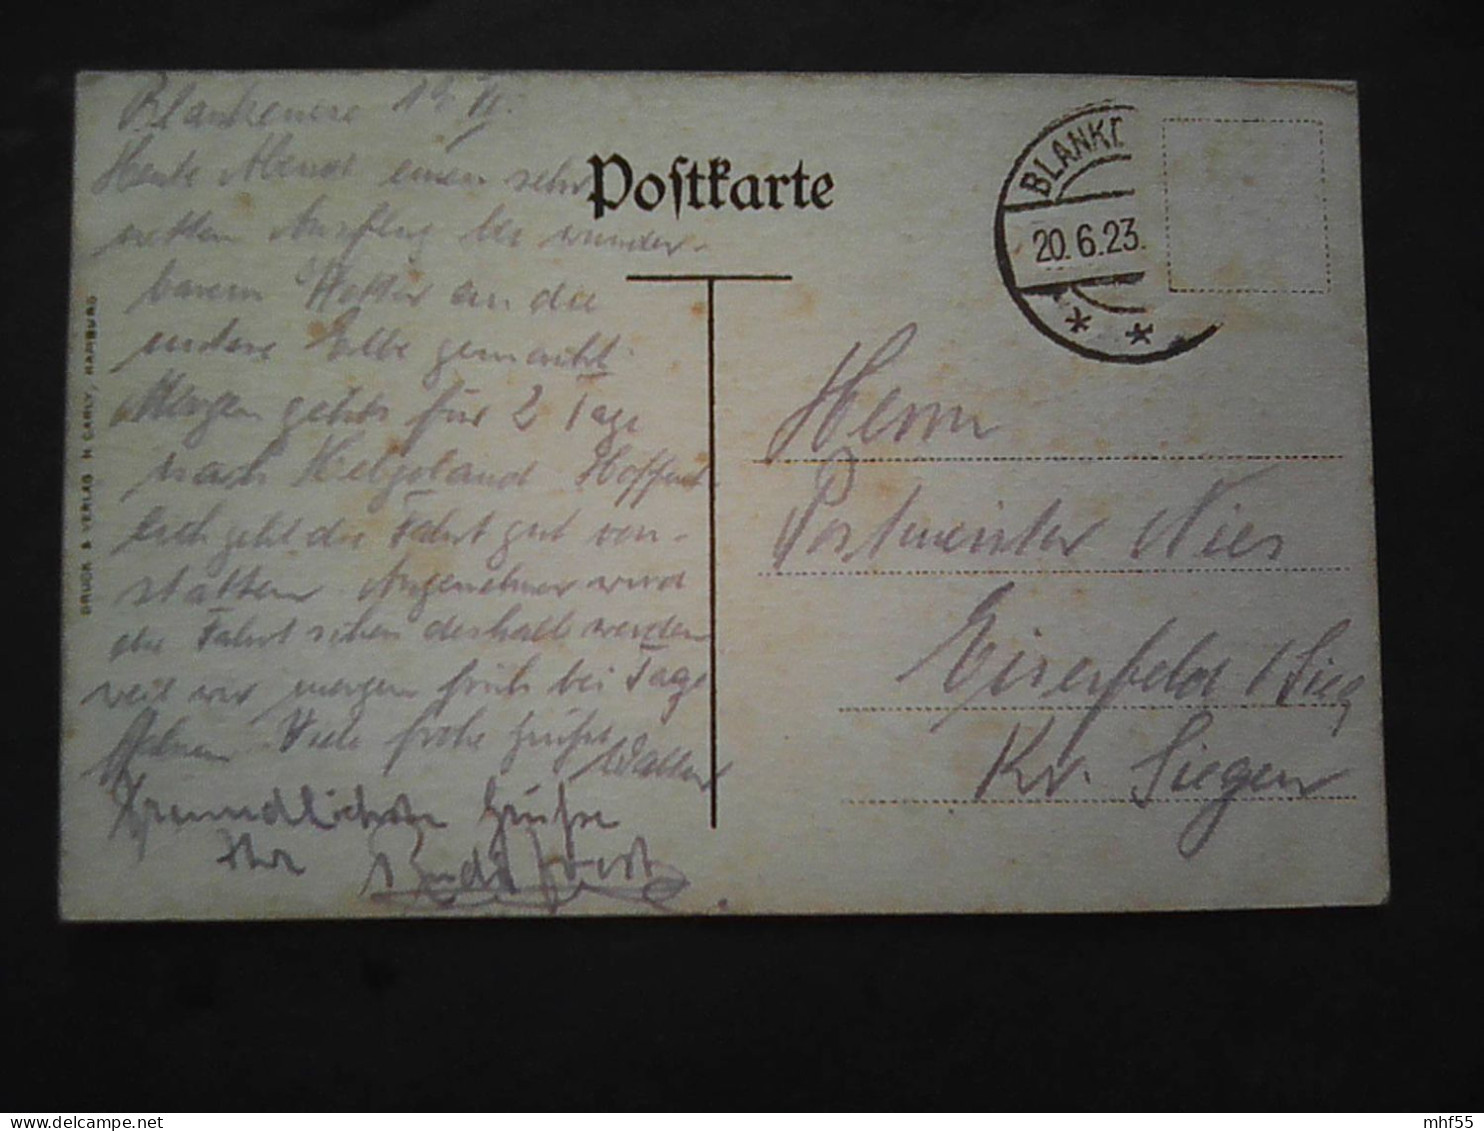 Blankenese 19. VI.
Heute Abend einen sehr
netten Ausflug bei wunder-
barem Wetter an die
untere Elbe gemacht.
Morgen gehts für 2 Tage
nach Helgoland Hoffent-
lich geht die Fahrt gut von-
statten. Angenehmer wird
die Fahrt schon deshalb werden
weil wir morgen früh bei Tage
fahren. Viele frohe Grüße
Walter
Freundlichste Grüße
Ihr Rudi
Postkarte
BLANKE
20.6.23.
Herrn
Postmeister Nies
Eiserfeld / Sieg
Kr. Siegen
DRUCK & VERLAG H. CARLY, HAMBURG
mhf55